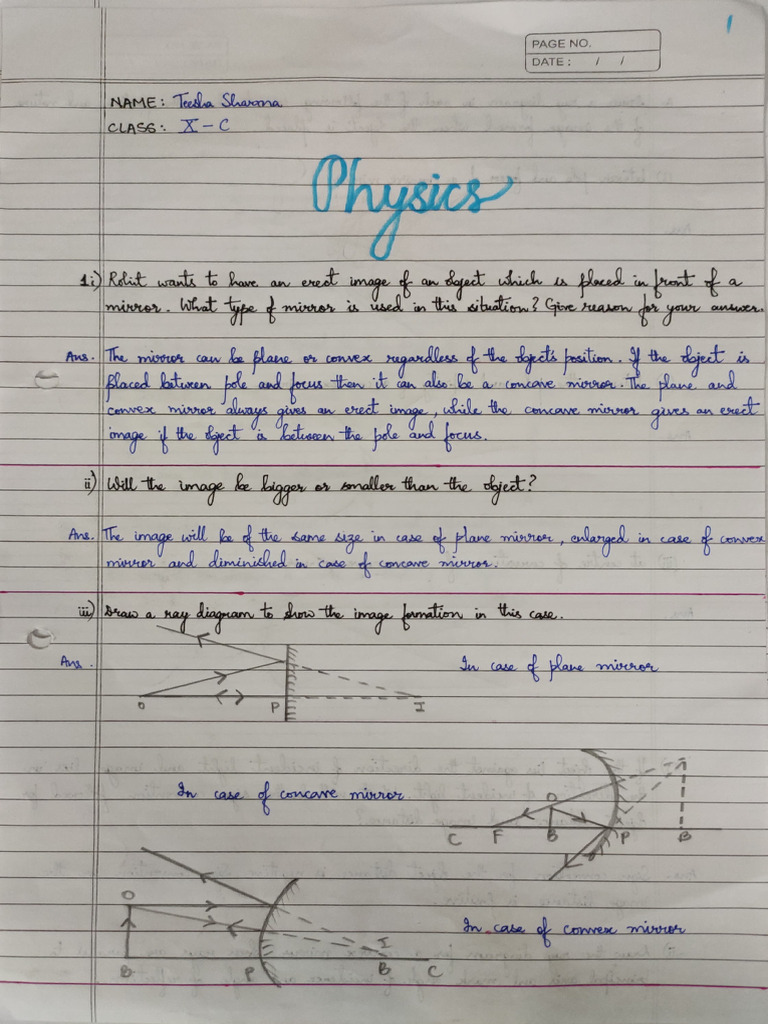 1
PAGE NO.
DATE : / /
NAME: Teesha Sharma
CLASS: X - C
Physics
1i) Rohit wants to have an erect image of an object which is placed in front of a
mirror. What type of mirror is used in this situation? Give reason for your answer.
Ans. The mirror can be plane or convex regardless of the object's position. If the object is
placed between pole and focus then it can also be a concave mirror. The plane and
convex mirror always gives an erect image, while the concave mirror gives an erect
image if the object is between the pole and focus.
ii) Will the image be bigger or smaller than the object?
Ans. The image will be of the same size in case of plane mirror, enlarged in case of convex
mirror and diminished in case of concave mirror.
iii) Draw a ray diagram to show the image formation in this case.
Ans. In case of plane mirror
O P I
In case of concave mirror
O
C F B P B
O In case of convex mirror
I
B P B C